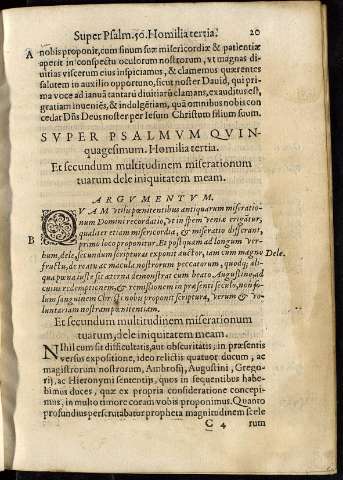 Super Psalm. 50. Homilia tertia. 20
A nobis proponit, cum sinum suæ misericordiæ & patientiæ
aperit in conspectu oculorum nostrorum, vt magnas di
uitias viscerum eius inspiciamus, & clamemus quærentes
salutem in auxilio opportuno, sicut noster Dauid, qui pri
ma voce ad ianuã tantarũ diuitiarũ clamans, exauditus est,
gratiam inueniẽs, & indulgẽtiam, quã omnibus nobis con
cedat Dñs Deus noster per Iesum Christum filium suum.
SVPER PSALMVM QVIN-
quagesimum. Homilia tertia.
Et secundum multitudinem miserationum
tuarum dele iniquitatem meam.
ARGVMENTVM.
QVAM vtilis pœnitentibus antiquarum miseratio-
num Domini recordatio, vt in spem veniæ erigãtur,
qualiter etiam misericordia, & miseratio differant,
B primo loco proponitur. Et postquam ad longum ver-
bum, dele, secundum scripturas exponit auctor, tam cum magno Dele.
fructu, de reatu ac macula nostrorum peccatorum, quodq; ali-
qua punctate sit æterna demonstrat cum beato Augustino, ad
cuius redemptionem, & remissionem in præsenti sæculo, non so-
lum sanguinem Christi nobis proponit scriptura, verum & vo-
luntariam nostram pœnitentiam.
Et secundum multitudinem miserationum
tuarum, dele iniquitatem meam.
NIhil cum sit difficultatis, aut obscuritatis, in præsentis
versus expositione, ideo relictis quatuor ducum, ac
magistrorum nostrorum, Ambrosij, Augustini, Grego-
rij, ac Hieronymi sententijs, quos in sequentibus habe-
bimus duces, quæ ex propria consideratione concepi-
mus, in multo timore coram vobis proponimus. Quanto
profundius perscrutabatur propheta magnitudinem scele
C 4 rum